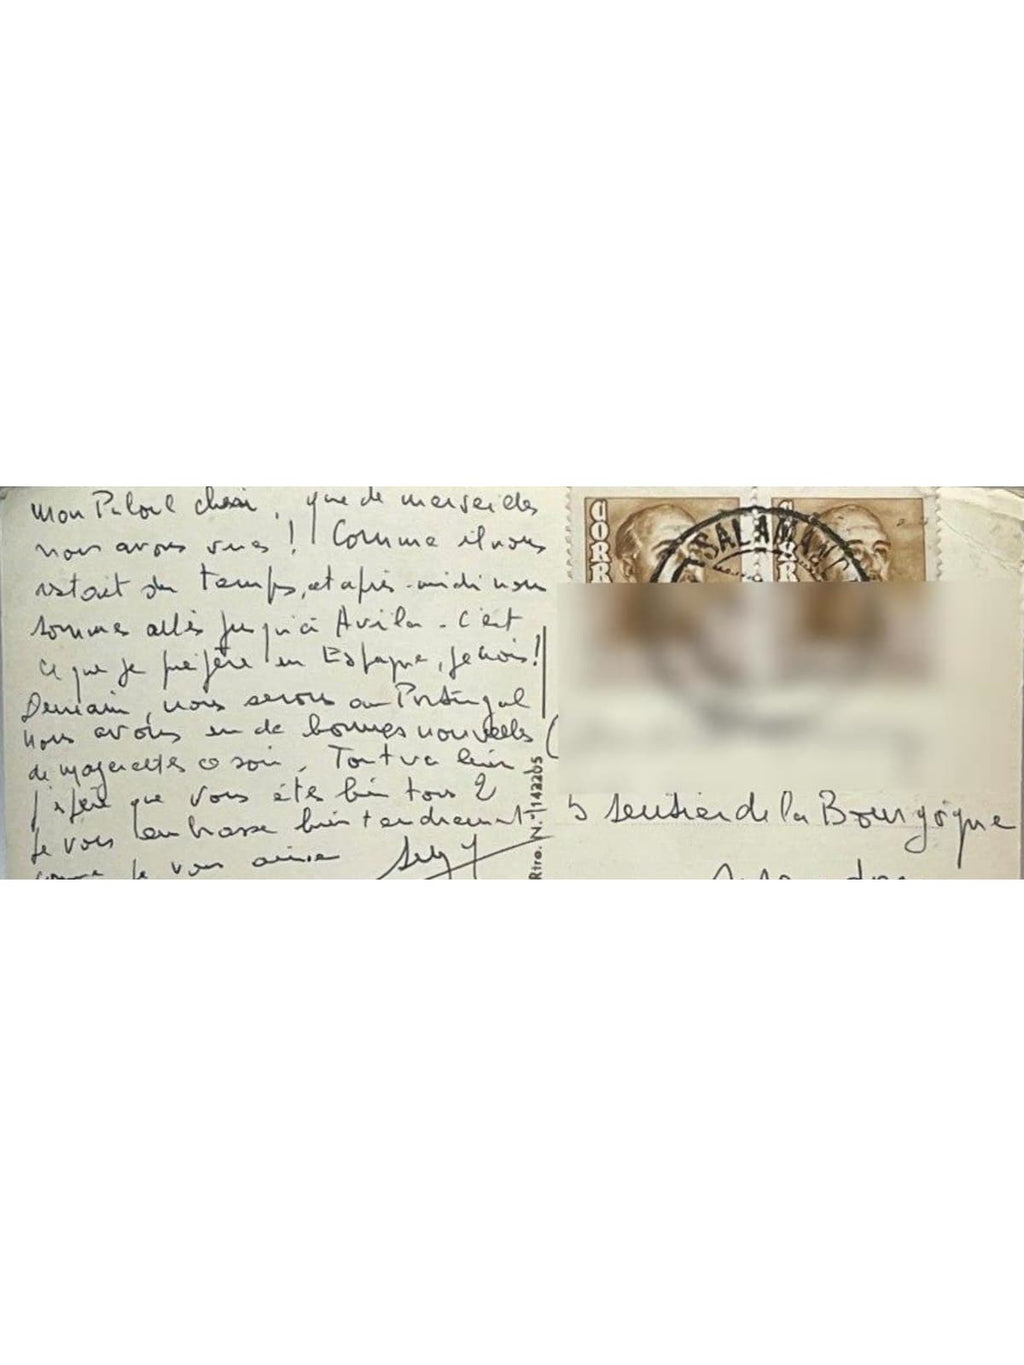 mon chéri, que de merveilles
nous avons vues ! Comme il nous
restait du temps, cet après-midi nous
sommes allés jusqu'à Avila - c'est
ce que je préfère en Espagne, je crois !
Demain, nous serons au Portugal
nous avons eu de bonnes nouvelles
de ce soir. Tout va bien
j'espère que vous êtes bien tous 2
Je vous embrasse bien tendrement
comme je vous aime
Rtro. N. 142205
CORR
COR
SALAMANC
5 sentier de la Bourgogne